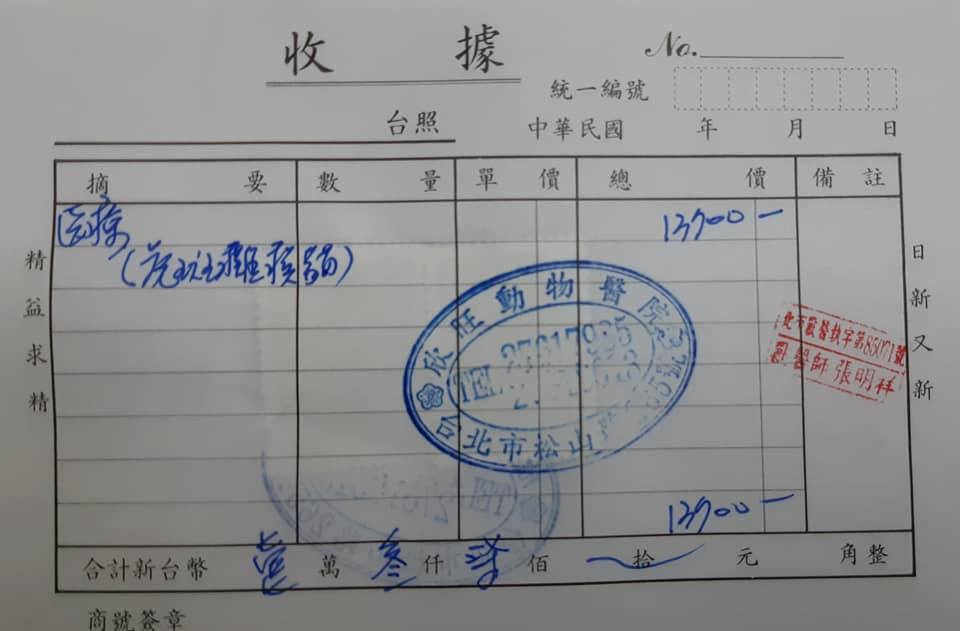 收據
No.
統一編號
台照
中華民國 年 月 日
摘要 數量 單價 總價 備註
医療 13700—
(虎斑
欣旺動物醫院
TEL
台北市松山
北市獸醫執字第85071號
獸醫師 張明祥
精益求精
日新又新
13700—
合計新台幣 壹萬參仟柒佰 拾 元 角整
商號簽章